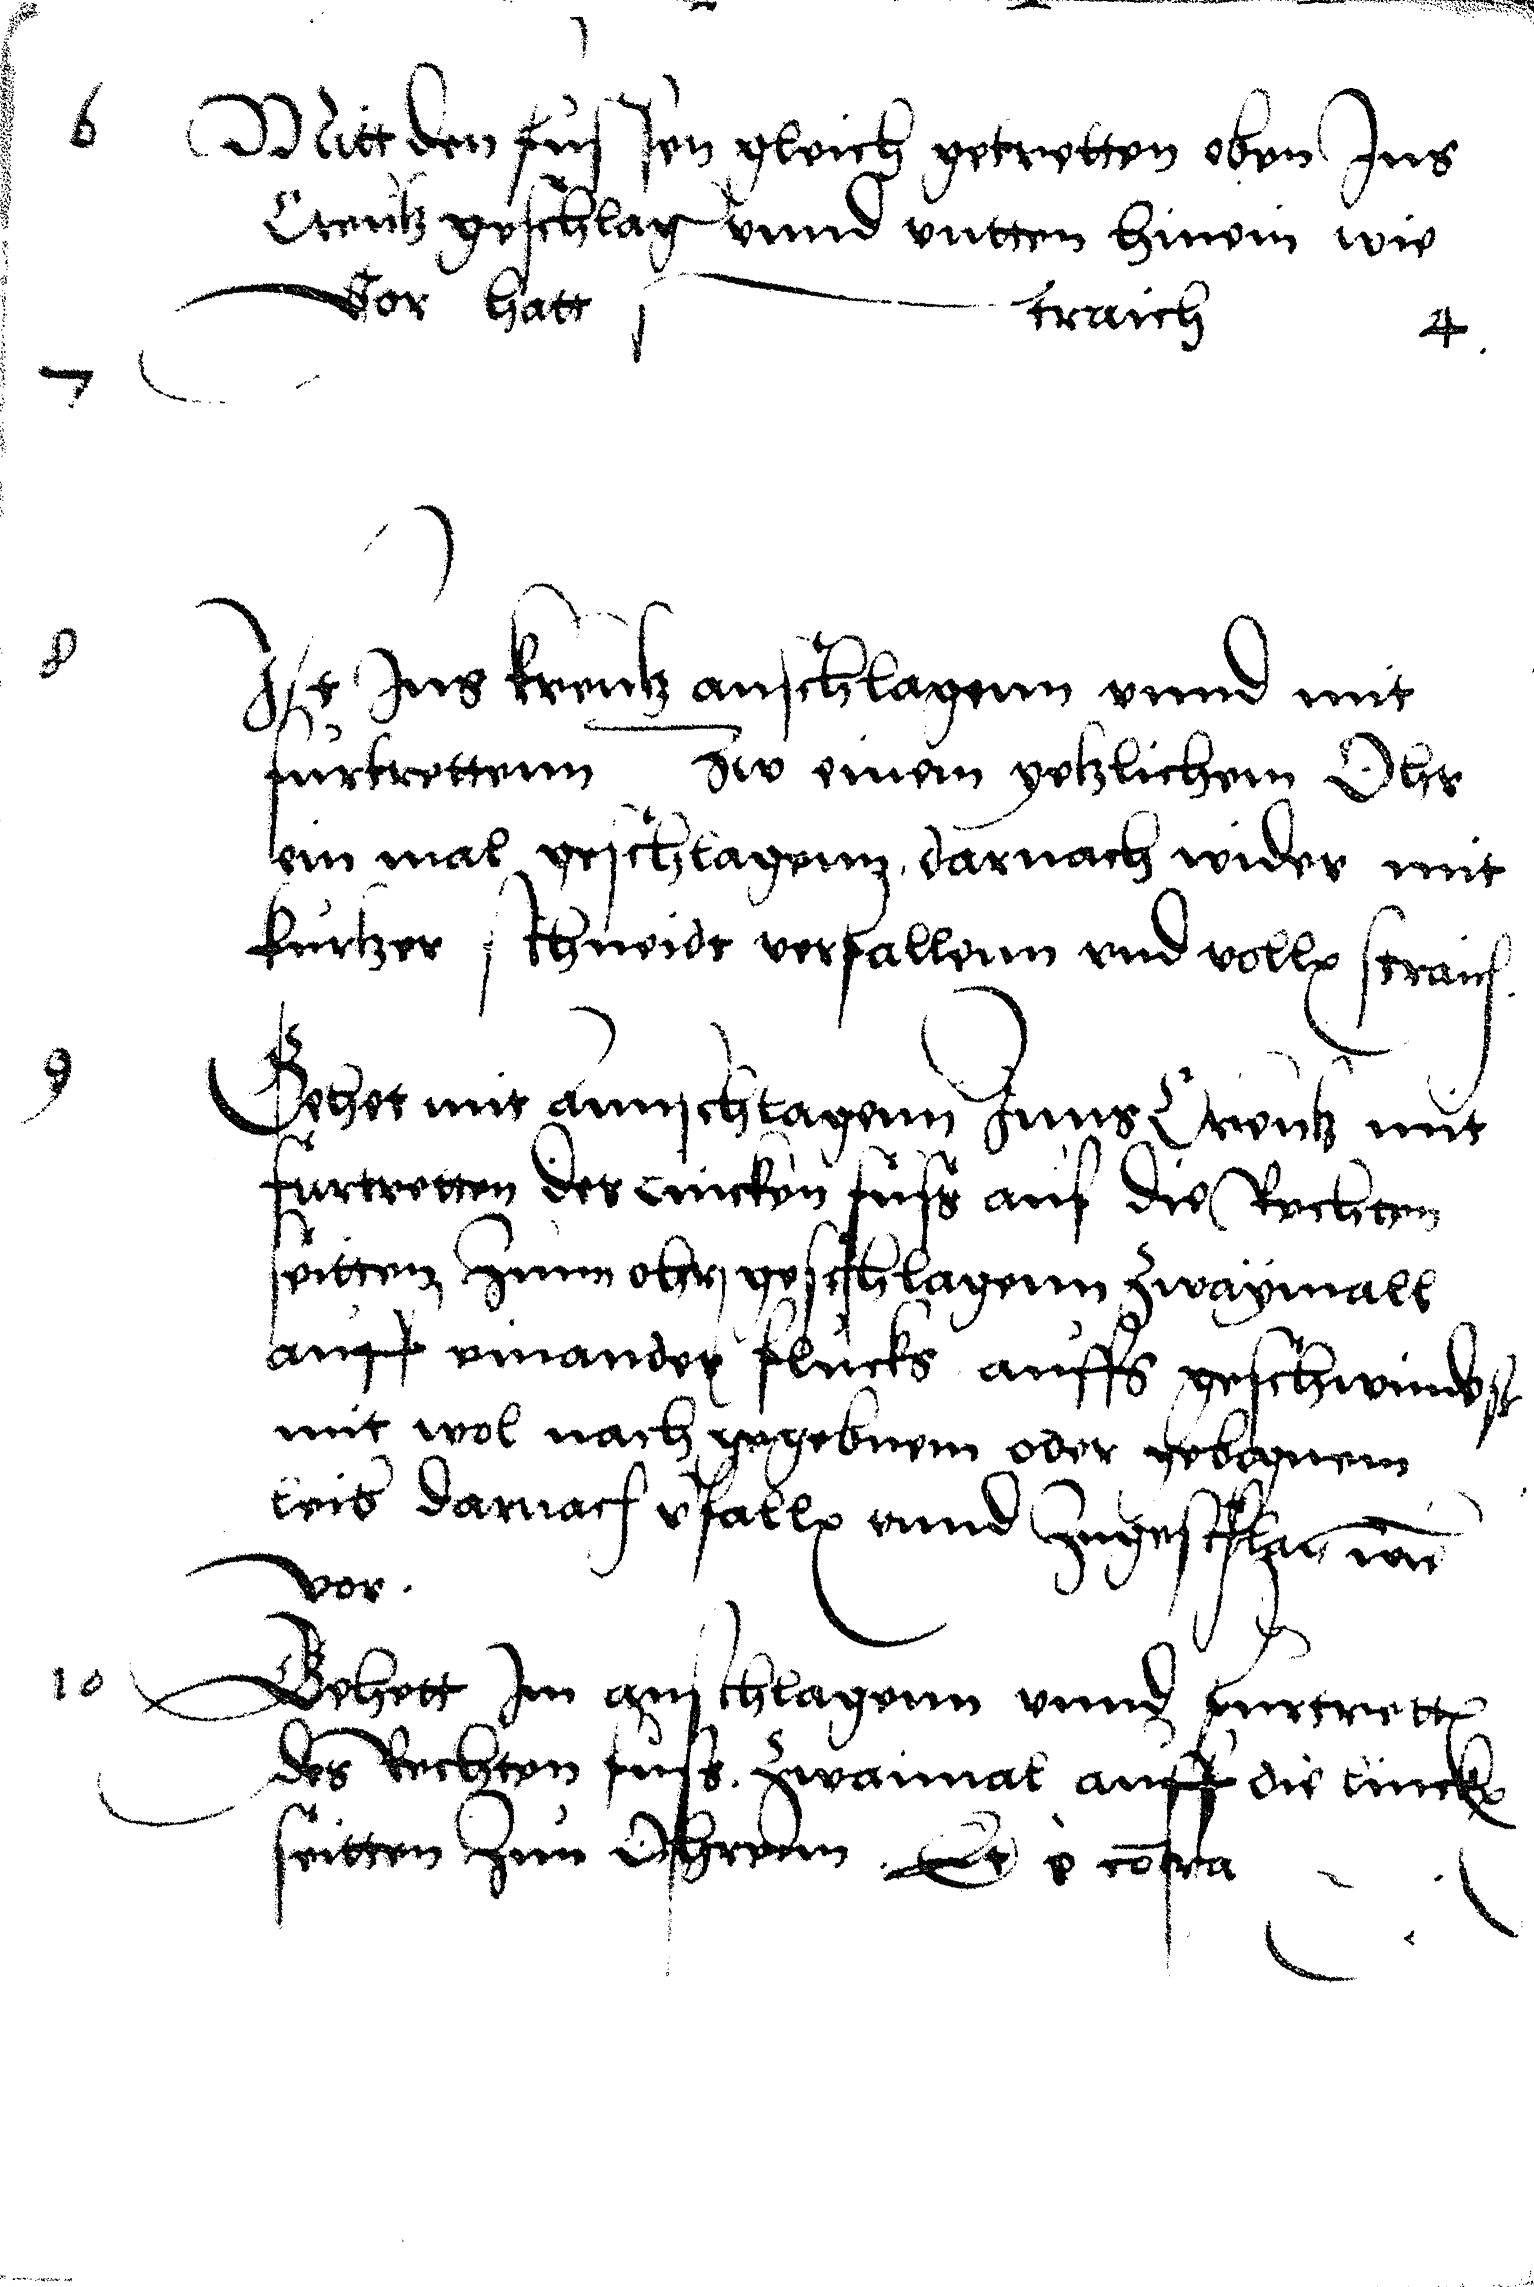 6 Mitt den füssen gleich getretten oben Ins
Creutz geschlag vnnd vntten hinein wie
vor hatt straich 4.
7
8 Ist Ins kreutz anschlagenn vnnd mit
fürtrettenn Zw einem yetzlichem Ohr
ein mal geschlagenn, darnach wider mit
kurtzer schneidt verfallenn vnd volln straich.
9 Gehet mit annschlagenn Inns Creutz mit
furtretten der lincken fuss auf die Rechten
seitten Zum ober geschlagenn Zwaÿmall
auff einander flucks auffs geschwindest
mit wol nach gegebnem oder gebognem
leib darnach vfalln vnnd Zugeschlagn wie
vor.
10 Gehett Im anschlagenn vnnd furtrettn
des Rechten fuss. Zwaimal auff die linckn
seitten Zun Ohrenn. Et è cōtra